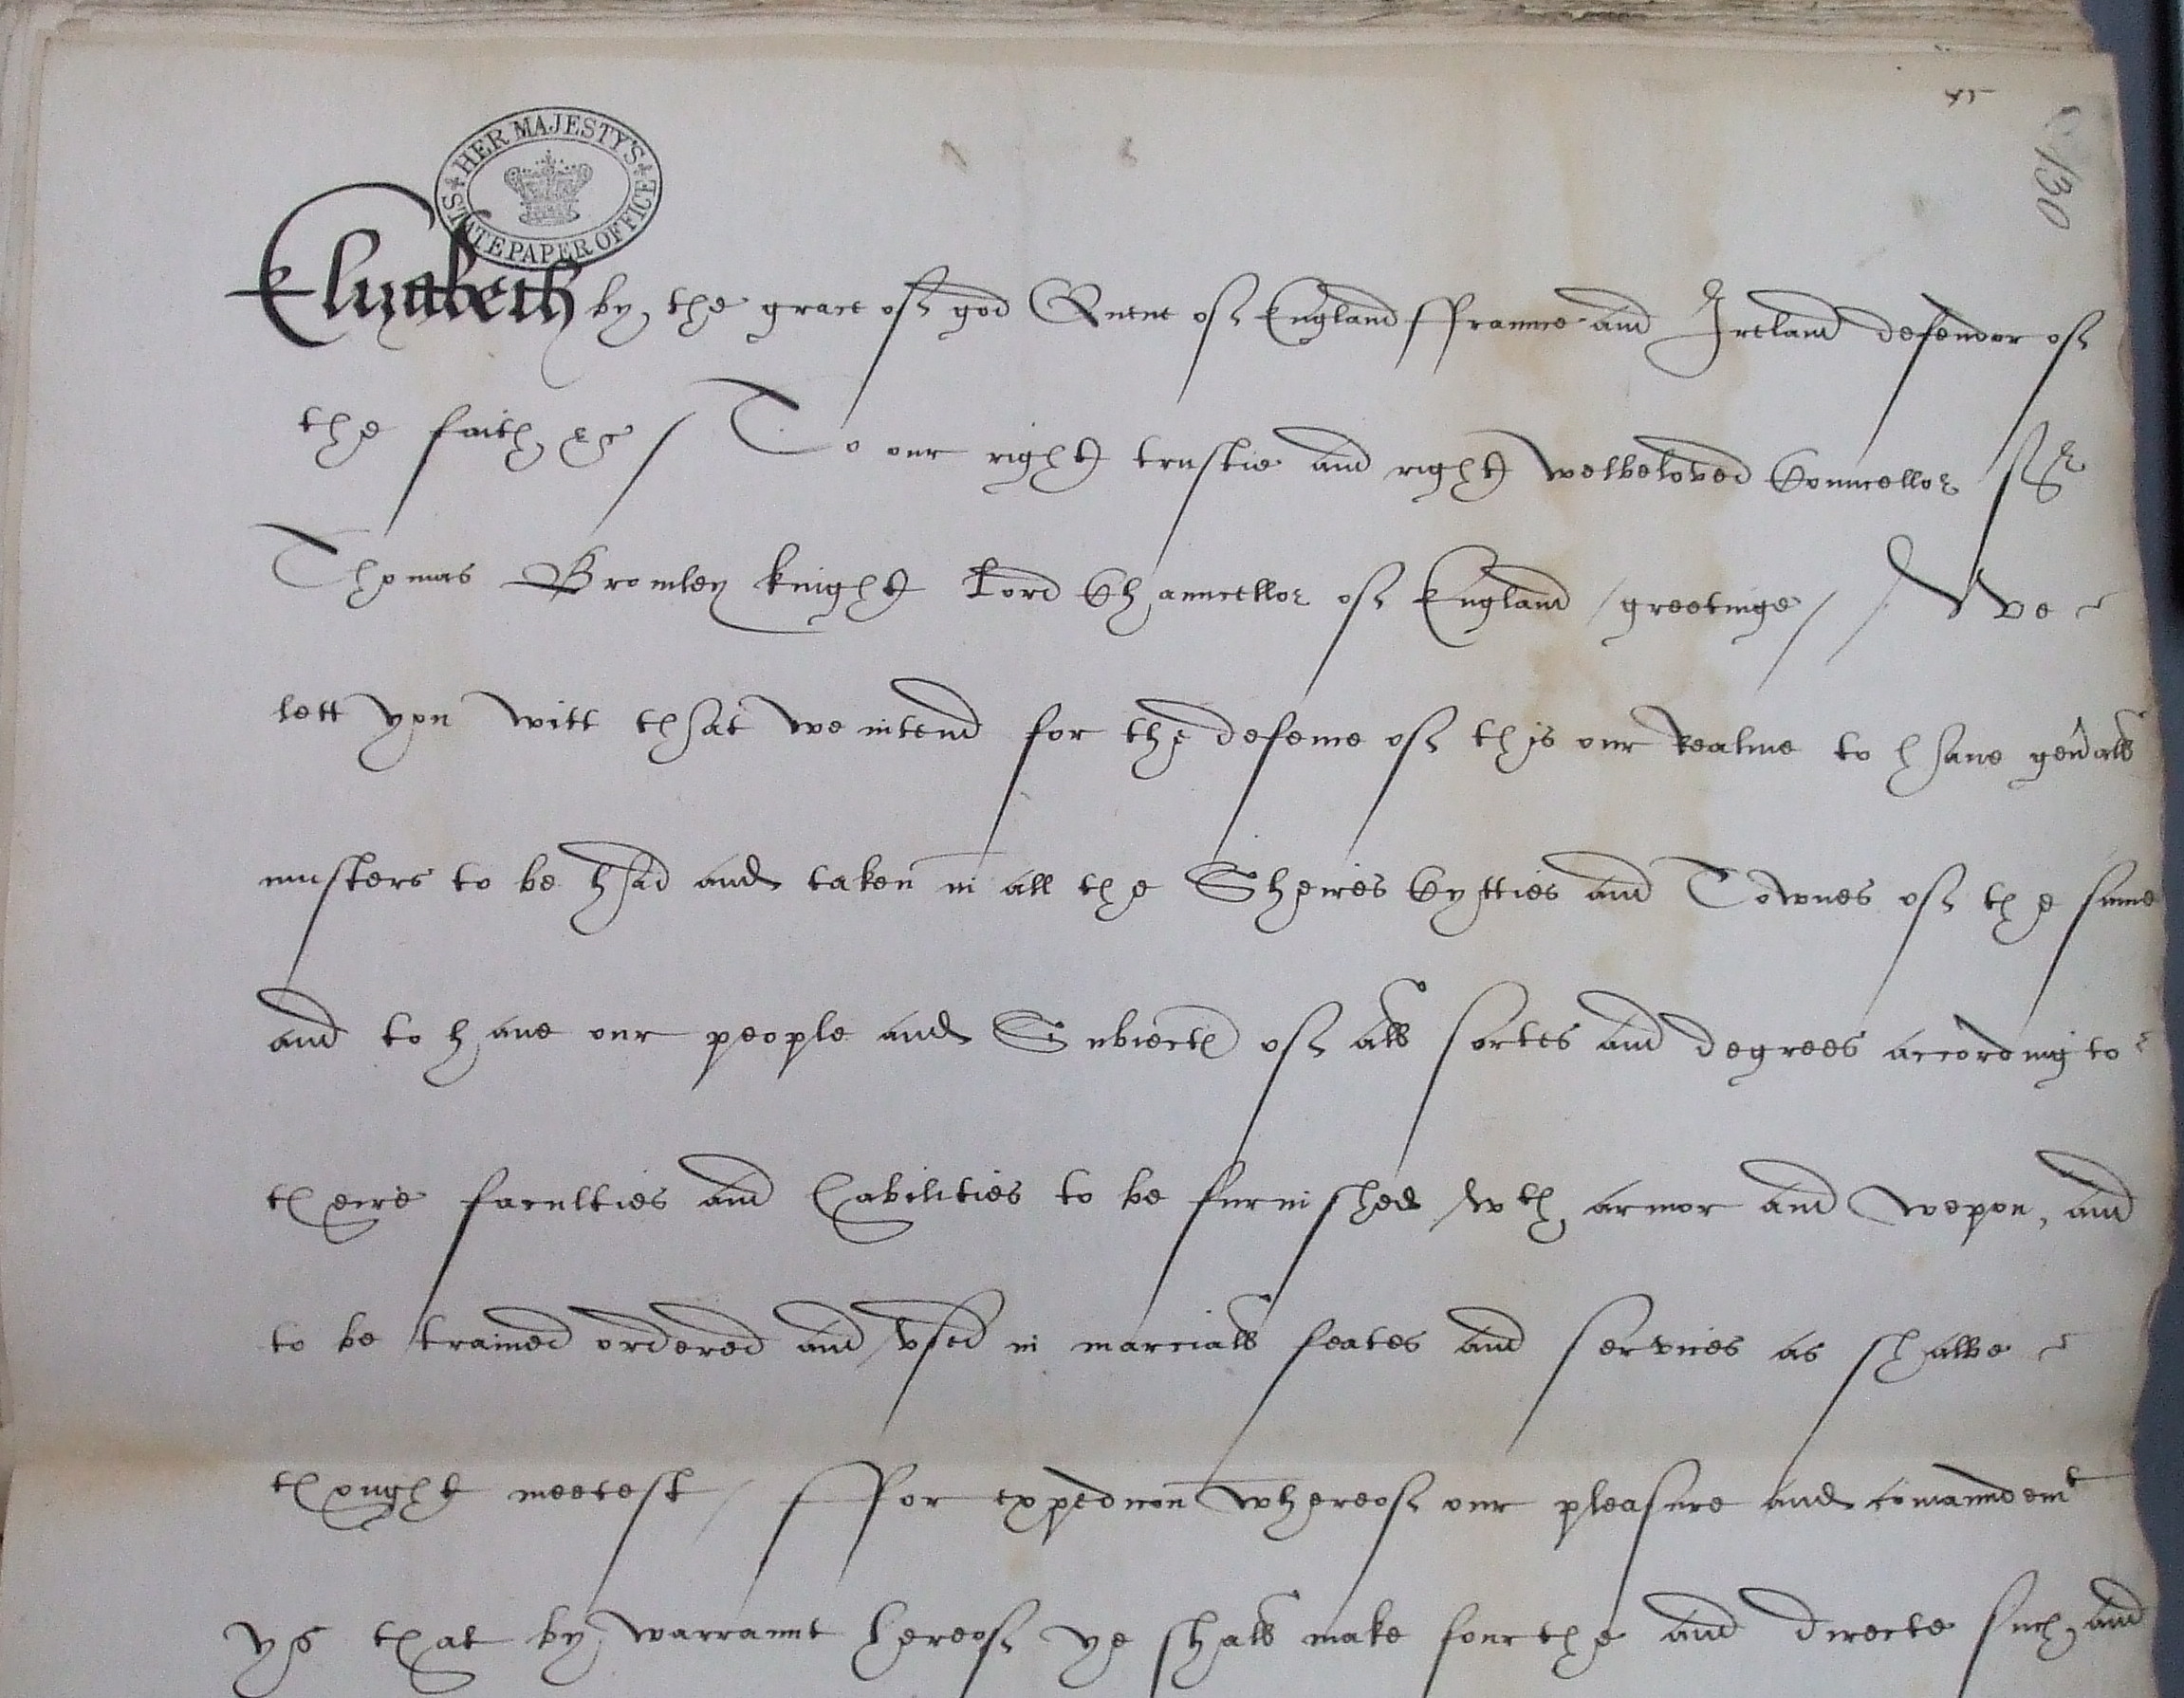 45
130
HER MAJESTY'S STATE PAPER OFFICE
Elizabeth by the grace of god Quene of England ffraunce and Ireland defendor of
the faith, &c / To our right trustie and right welbeloved Councellor Sr
Thomas Bromley knight Lord Chauncellor of England / greetinge / / Wee
lett you witt that we intend for the defence of this our Realme to have gen'all
musters to be had and taken in all the Sheires Cytties and Townes of the same
and to have our people and Subiectes of all sortes and degrees according to
theire faculties and habilities to be furnished wth armor and wepon, and
to be trained ordered and vsed in marciall feates and services as shalbe
thought meetest / ffor expedicon whereof our pleasure and comaundemt
ys that by warraunt hereof ye shall make fourthe and directe such and